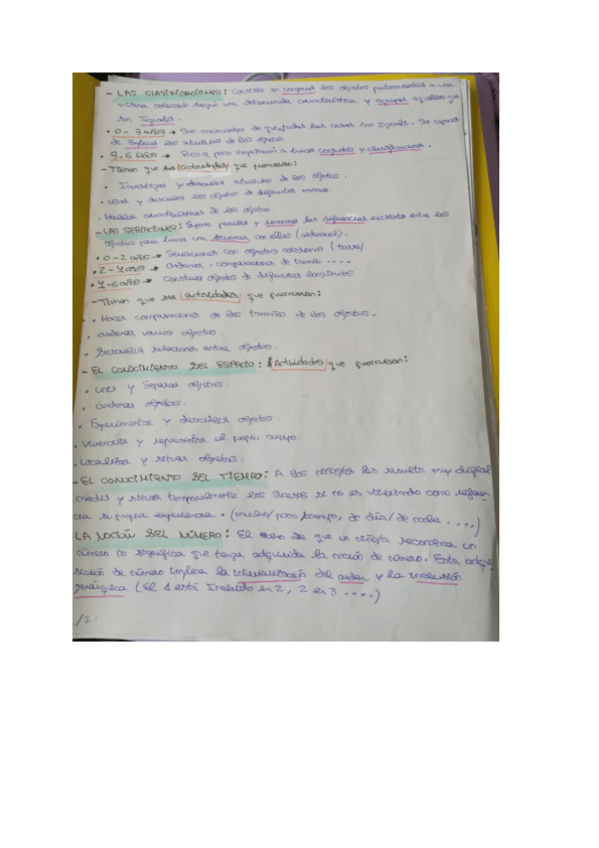 - LAS CLASIFICACIONES: Consiste en comparar los objetos pertenecientes a una
misma colección según una determinada característica y agrupar aquellos que
son Iguales.
• 0-3 años → Son de las cuales son Iguales. Son capaces
de los atributos de los objetos
• 3-6 años → Poco a poco empiezan a hacer conjuntos y clasificaciones.
- Tienen que ser actividades que promuevan:
• Investigar y describir atributos de los objetos.
• Usar y describir los objetos de diferentes formas.
• características de los objetos.
- LAS SERIACIONES: Supone percibir y las diferencias existente entre los
objetos para hacer una con ellos (ordenación).
• 0-2 años → Situaciones con objetos cotidianos
• 2-7 años → Ordenar - comparaciones de tamaño ....
• 7-6 años → Construir objetos de diferentes longitudes
- Tienen que ser actividades que promuevan:
• Hacer comparaciones de los tamaños de los objetos.
• ordenar varios objetos.
• Describir relaciones entre objetos.
- EL CONOCIMIENTO DEL ESPACIO: Actividades que promuevan:
• Unir y Separar objetos.
• ordenar objetos.
• Experimentar y describir objetos.
• Vivenciar y representar el propio cuerpo.
• Localizar y situar objetos.
- EL CONOCIMIENTO DEL TIEMPO: A los pequeños les resulta muy difícil
medir y situar temporalmente los sucesos si no es utilizando como referen
cia su propia experiencia. (mucho/poco tiempo, de día/de noche ....)
LA NOCIÓN DEL NÚMERO: El hecho de que un niño/a reconozca un
número no significa que tenga adquirida la noción de número. Esta adqui
sición de número implica la del orden y la inclusión
jerárquica (El 1 está Incluido en 2, 2 en 3 ....)